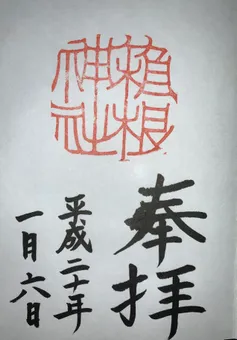 根
神社
奉拝
平成二十年
一月六日